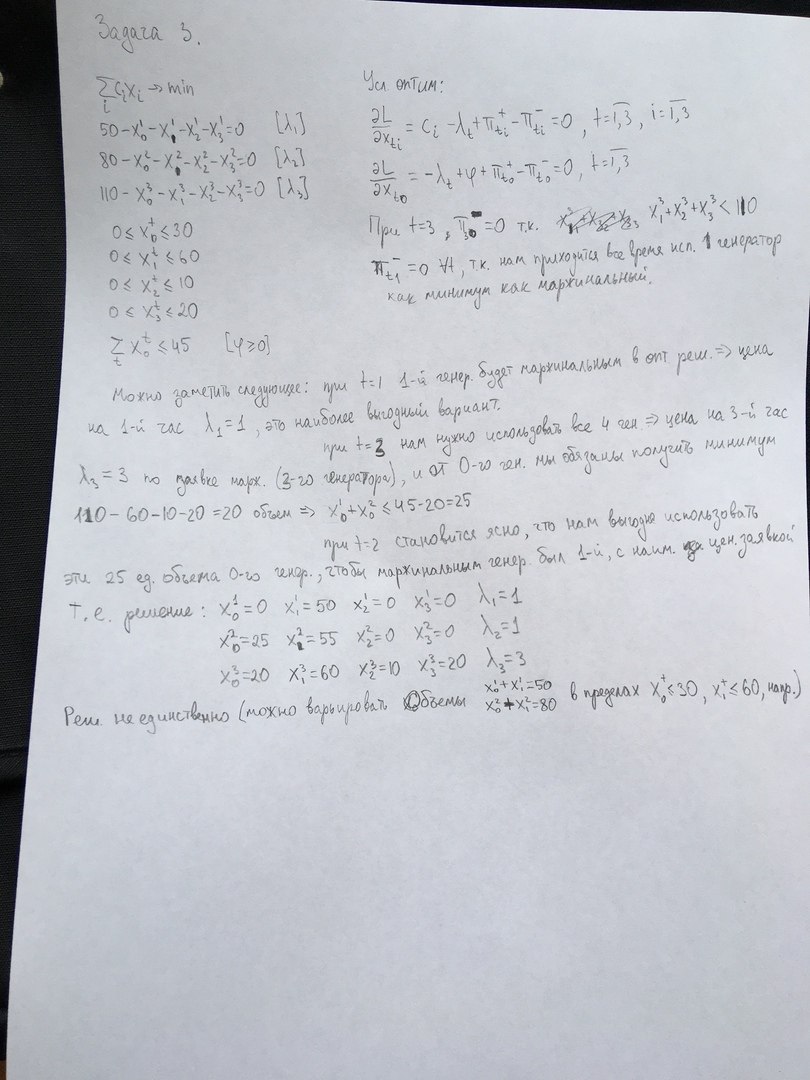 Задача 3.
∑_i c_i x_i → min
50 - x_0^1 - x_1^1 - x_2^1 - x_3^1 = 0 [λ_1]
80 - x_0^2 - x_1^2 - x_2^2 - x_3^2 = 0 [λ_2]
110 - x_0^3 - x_1^3 - x_2^3 - x_3^3 = 0 [λ_3]
0 ≤ x_0^t ≤ 30
0 ≤ x_1^t ≤ 60
0 ≤ x_2^t ≤ 10
0 ≤ x_3^t ≤ 20
∑_t x_0^t ≤ 45 [φ ≥ 0]
Усл. оптим:
∂L/∂x_{ti} = c_i - λ_t + π_{ti}^+ - π_{ti}^- = 0, t = 1,3, i = 1,3
∂L/∂x_{t0} = -λ_t + φ + π_{t0}^+ - π_{t0}^- = 0, t = 1,3
При t=3, π_{30}^- = 0 т.к. x_1^3 + x_2^3 + x_3^3 < 110
π_{t1}^- = 0 ∀t, т.к. нам приходится все время исп. 1 генератор
как минимум как маржинальный.
Можно заметить следующее: при t=1 1-й генер. будет маржинальным в опт. реш. ⇒ цена
на 1-й час λ_1 = 1, это наиболее выгодный вариант.
при t=3 нам нужно использовать все 4 ген. ⇒ цена на 3-й час
λ_3 = 3 по заявке марж. (3-го генератора), и от 0-го ген. мы обязаны получить минимум
110 - 60 - 10 - 20 = 20 объем ⇒ x_0^1 + x_0^2 ≤ 45 - 20 = 25
при t=2 становится ясно, что нам выгодно использовать
эти 25 ед. объема 0-го генер., чтобы маржинальным генер. был 1-й, с наим. цен. заявкой
Т.е. решение: x_0^1 = 0 x_1^1 = 50 x_2^1 = 0 x_3^1 = 0 λ_1 = 1
x_0^2 = 25 x_1^2 = 55 x_2^2 = 0 x_3^2 = 0 λ_2 = 1
x_0^3 = 20 x_1^3 = 60 x_2^3 = 10 x_3^3 = 20 λ_3 = 3
Реш. не единственно (можно варьировать Объемы x_0^1 + x_1^1 = 50 x_0^2 + x_1^2 = 80 в пределах x_0^t ≤ 30, x_1^t ≤ 60, напр.)